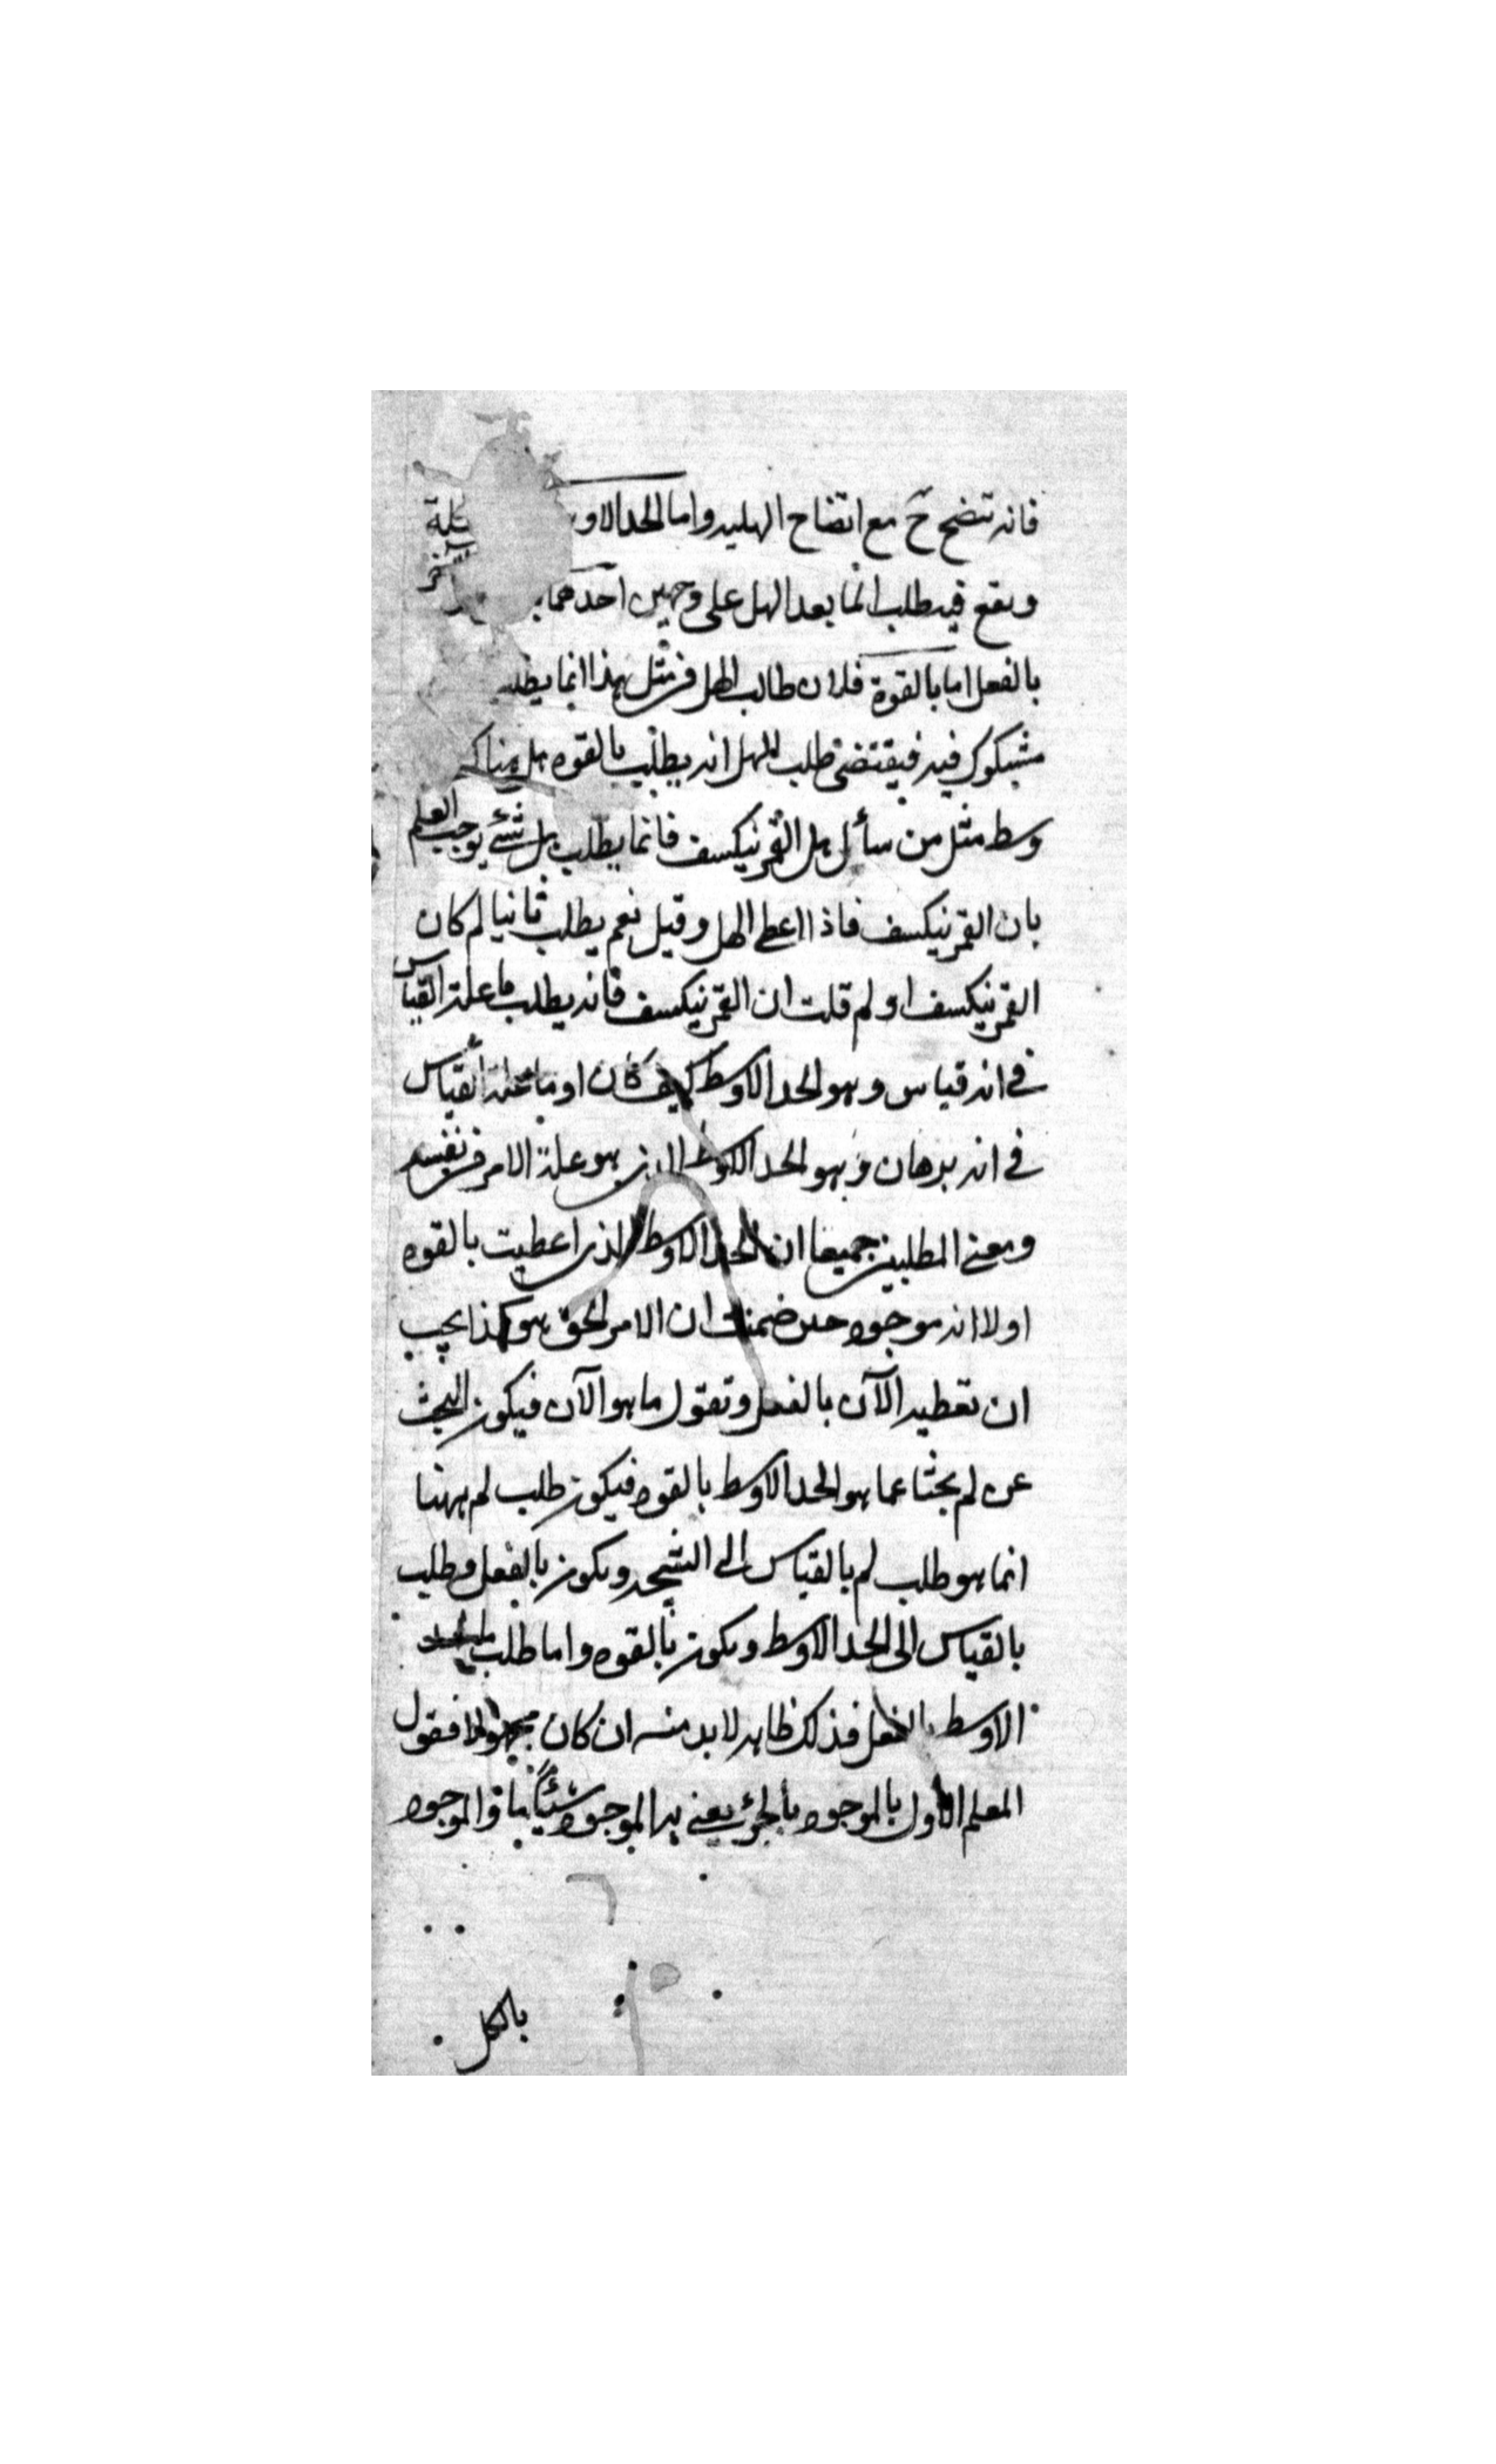 فانه تتضح ح مع اتضاح الهليه واما الحد الاو
ويقع فيه طلب الما بعد الهل على وجهين احدهما
بالفعل اما بالقوة فلان طالب الهل فى مثل هذا انما يطلب
مشكوك فيه فيقتضى طلب الهل انه يطلب بالقوه هل هناك
وسط مثل من سأل هل القمر ينكسف فانما يطلب هل شئ يوجب العلم
بان القمر ينكسف فاذا اعطى الهل وقيل نعم يطلب ثانيا لم كان
القمر ينكسف او لم قلت ان القمر ينكسف فانه يطلب ما علة القياس
فى انه قياس وهو الحد الاوسط كيف كان او ما علة القياس
فى انه برهان وهو الحد الاوسط الذى هو علة الامر فى نفسه
ومعنى المطلبين جميعا ان الحد الاوسط الذى اعطيت بالقوه
اولا انه موجود حين ضمنت ان الامر الحق هو كذا يجب
ان تعطيه الآن بالفعل وتقول ما هو الآن فيكون البحث
عن لم بحثا عما هو الحد الاوسط بالقوه فيكون طلب لم ههنا
انما هو طلب لم بالقياس الى النتيجه ويكون بالفعل وطلب
بالقياس الى الحد الاوسط ويكون بالقوه واما طلب
الاوسط بالفعل فذلك ظاهر لا بد منه ان كان مجهولا فقول
المعلم الاول بالموجود بالجزئ يعنى به الموجود شيئا ما والموجود
بالكل